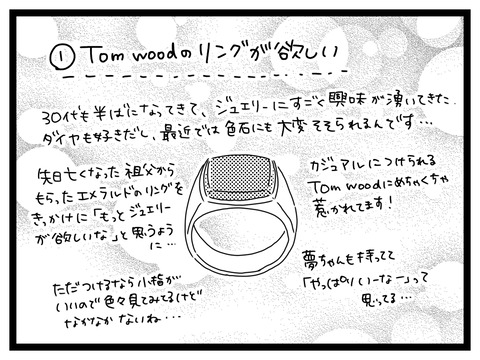 ① Tom woodのリングが欲しい
30代も半ばになってきて、ジュエリーにすごく興味が湧いてきた
ダイヤも好きだし、最近では色石にも大変そそられるんです…
先日亡くなった祖父から
もらったエメラルドのリングを
きっかけに「もっとジュエリー
が欲しいな」と思うよう
に…
カジュアルにつけられる
Tom woodにめちゃくちゃ
惹かれてます!
夢ちゃんも持ってて
「やっぱりいーなー」って
思ってる…
ただつけるなら小指が
いいので色々見てみてるけど
なかなかないね…